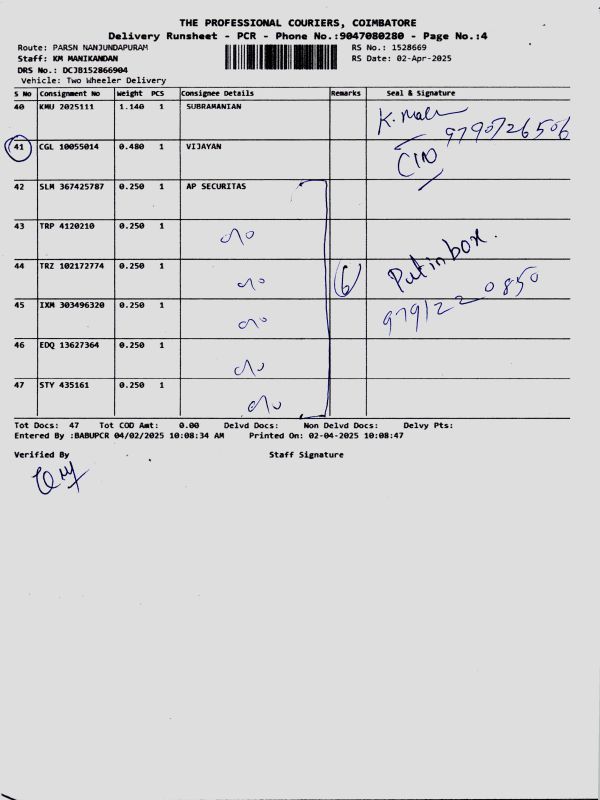 THE PROFESSIONAL COURIERS, COIMBATORE
Delivery Runsheet - PCR - Phone No.:9047080280 - Page No.:4
Route: PARSN NANJUNDAPURAM RS No.: 1528669
Staff: KM MANIKANDAN RS Date: 02-Apr-2025
DRS No.: DCJB152866904
Vehicle: Two Wheeler Delivery
S No Consignment No Weight PCS Consignee Details Remarks Seal & Signature
40 KMU 2025111 1.140 1 SUBRAMANIAN
9790726506
41 CGL 10055014 0.480 1 VIJAYAN
42 SLM 367425787 0.250 1 AP SECURITAS
43 TRP 4120210 0.250 1
Put in box.
44 TRZ 102172774 0.250 1 6
9791220850
45 IXM 303496320 0.250 1
46 EDQ 13627364 0.250 1
47 STY 435161 0.250 1
Tot Docs: 47 Tot COD Amt: 0.00 Delvd Docs: Non Delvd Docs: Delvy Pts:
Entered By :BABUPCR 04/02/2025 10:08:34 AM Printed On: 02-04-2025 10:08:47
Verified By Staff Signature